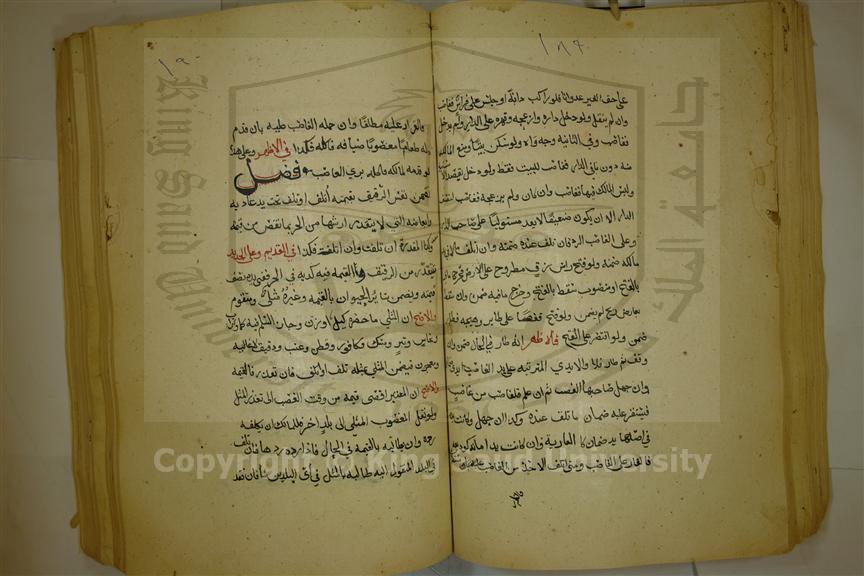 ١٨٩
على حق الغير عدوانا فلو ركب دابة او جلس على فراش فغاصب
وان لم ينقل ولو دخل داره وازعجه او قهره على الدار ولم يدخل
فغاصب وفي الثانية وجه واه ولو سكن بيتا ومنع المالك
منه دون باقي الدار فغاصب للبيت فقط ولو دخل بقصد الاستيلاء
وليس المالك فيها فغاصب وان كان ولم يزعجه فغاصب لنصف
الدار الا ان يكون ضعيفا لا يعد مستوليا على صاحب الدار
وعلى الغاصب الرد فان تلف عنده ضمنه ولو اتلف مالا في يد
مالكه ضمنه ولو فتح راس زق مطروح على الارض فخرج ما فيه
بالفتح او منصوب فسقط بالفتح وخرج ما فيه ضمن وان سقط
بعارض ريح لم يضمن ولو فتح قفصا على طاير وهيجه فطار
ضمن ولو اقتصر على الفتح فالاظهر انه طار في الحال ضمن وان
وقف ثم طار فلا والايدي المترتبه على يد الغاصب ايدي
وان جهل صاحبها الغصب ثم ان علم فكغاصب من غاصب
فيستقر عليه ضمان ما تلف عنده وكذا ان جهل وكانت يده
في اصلها يد ضمان كالعارية وان كانت يد امانة كوديعة
فالقرار على الغاصب ومتى اتلف الاخذ من الغاصب مستقلا به
١٩٠
فالقرار عليه مطلقا وان حمله الغاصب عليه بان قدم
له طعاما مغصوبا ضيافة فاكله فكذا في الاظهر وعلى هذا
لو قدمه لمالكه فاكله بري الغاصب فصل
تضمن نفس الرقيق بقيمته اتلف او تلف تحت يد عاديه
وابعاضه التي لا يتقدر ارشها من الحر بما نقص من قيمته
وكذا المقدرة ان تلفت وان اتلفت فكذا في القديم وعلى الجديد
تتقدر من الرقيق والقيمه فيه كديه في الحر ففي يده نصف
قيمته ويضمن سائر الحيوان بالقيمه وغيره مثلي ومتقوم
والاصح ان المثلي ما حصره كيل او وزن وجاز السلم فيه كماء وتراب
ونحاس وتبر ومسك وكافور وقطن وعنب ودقيق لا غاليه
ومعجون فيضمن المثلي بمثله تلف او اتلف فان تعذر فالقيمه
والاصح ان المعتبر اقصى قيمه من وقت الغصب الى تعذر المثل
ولو نقل المغصوب المثلي الى بلد اخر فللمالك ان يكلفه
رده وان يطالبه بالقيمة في الحال فاذا رده ردها فان تلف
في البلد المنقول اليه طالبه بالمثل في أي البلدين شا فان فقد
King Saud University
جامعة الملك
Copyright © King Saud University